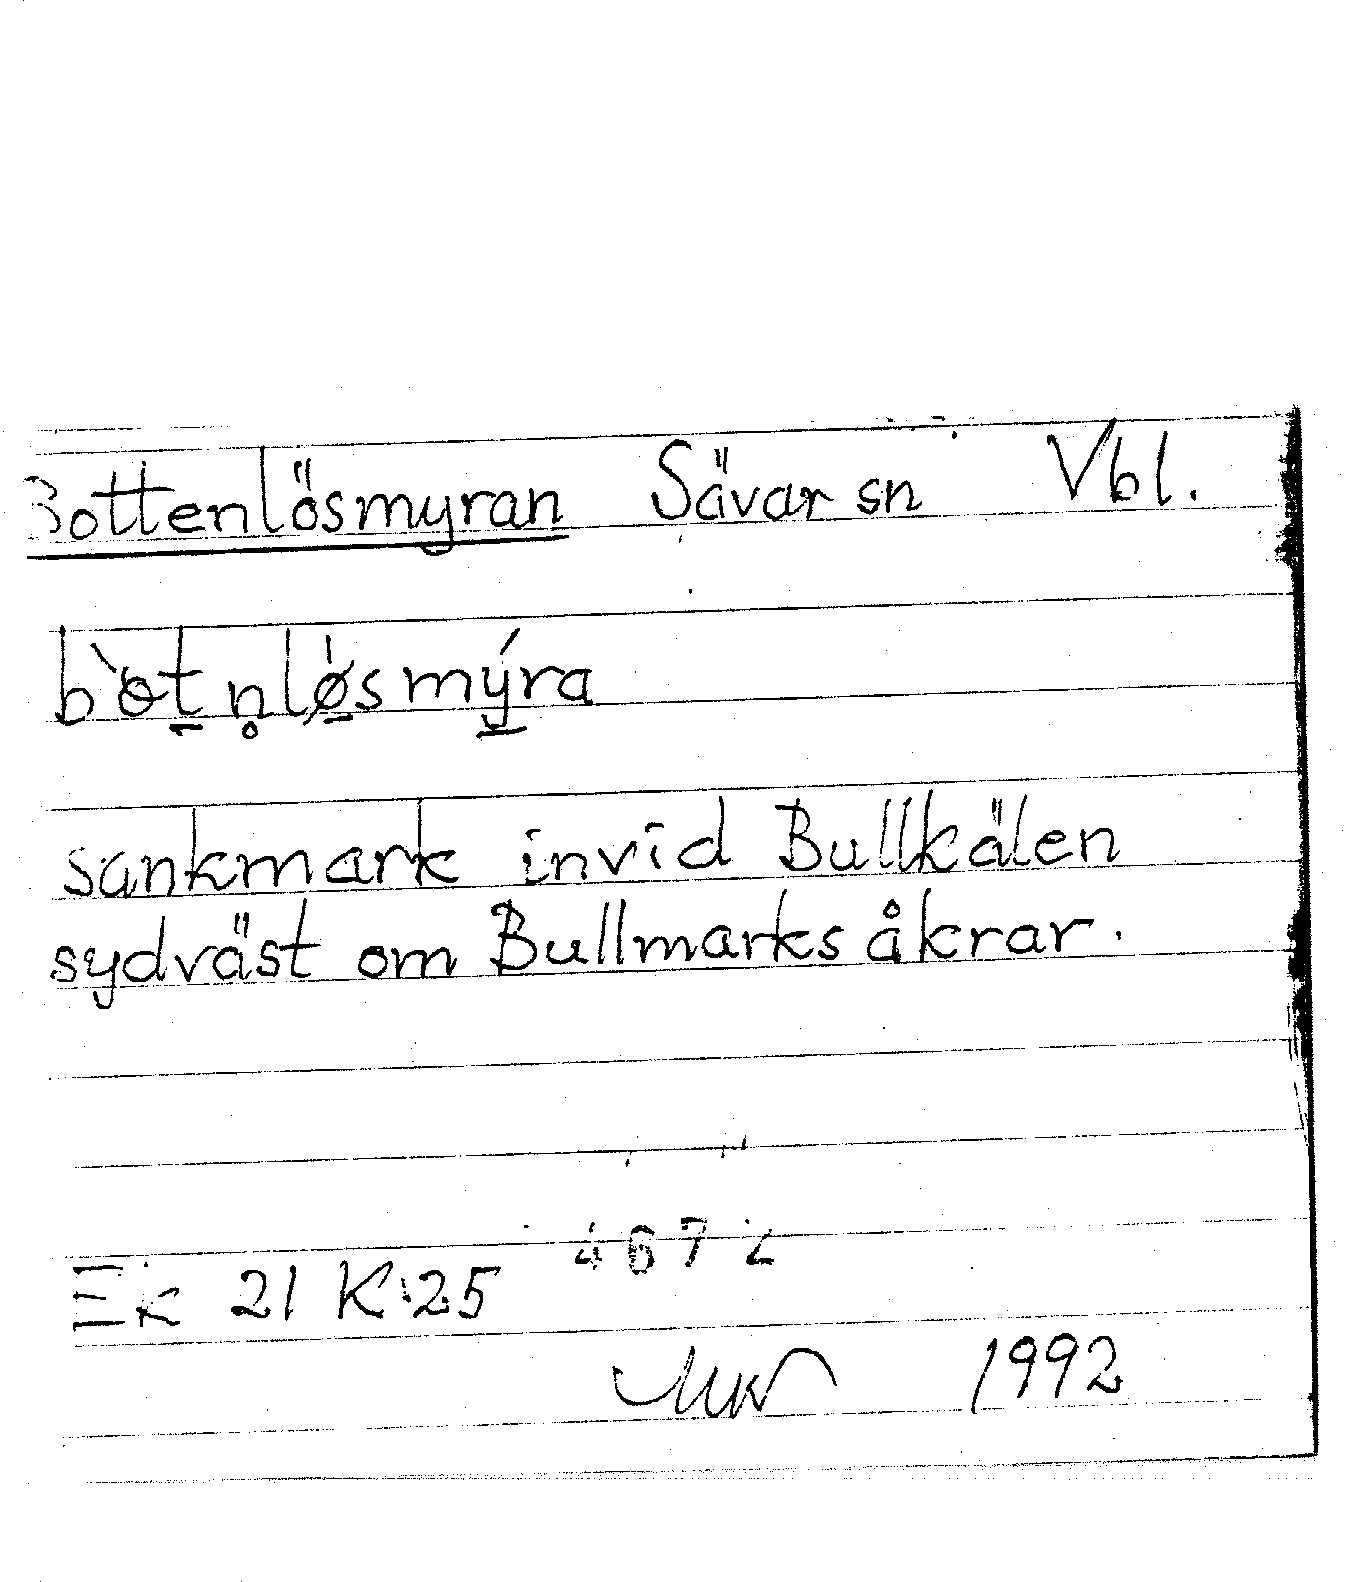 Bottenlösmyran Sävar sn Vbl.
bòt̠n̥lø̠smý̠ra
sankmark invid Bullkälen
sydväst om Bullmarks åkrar.
4672
Ek 21 K 25
1992